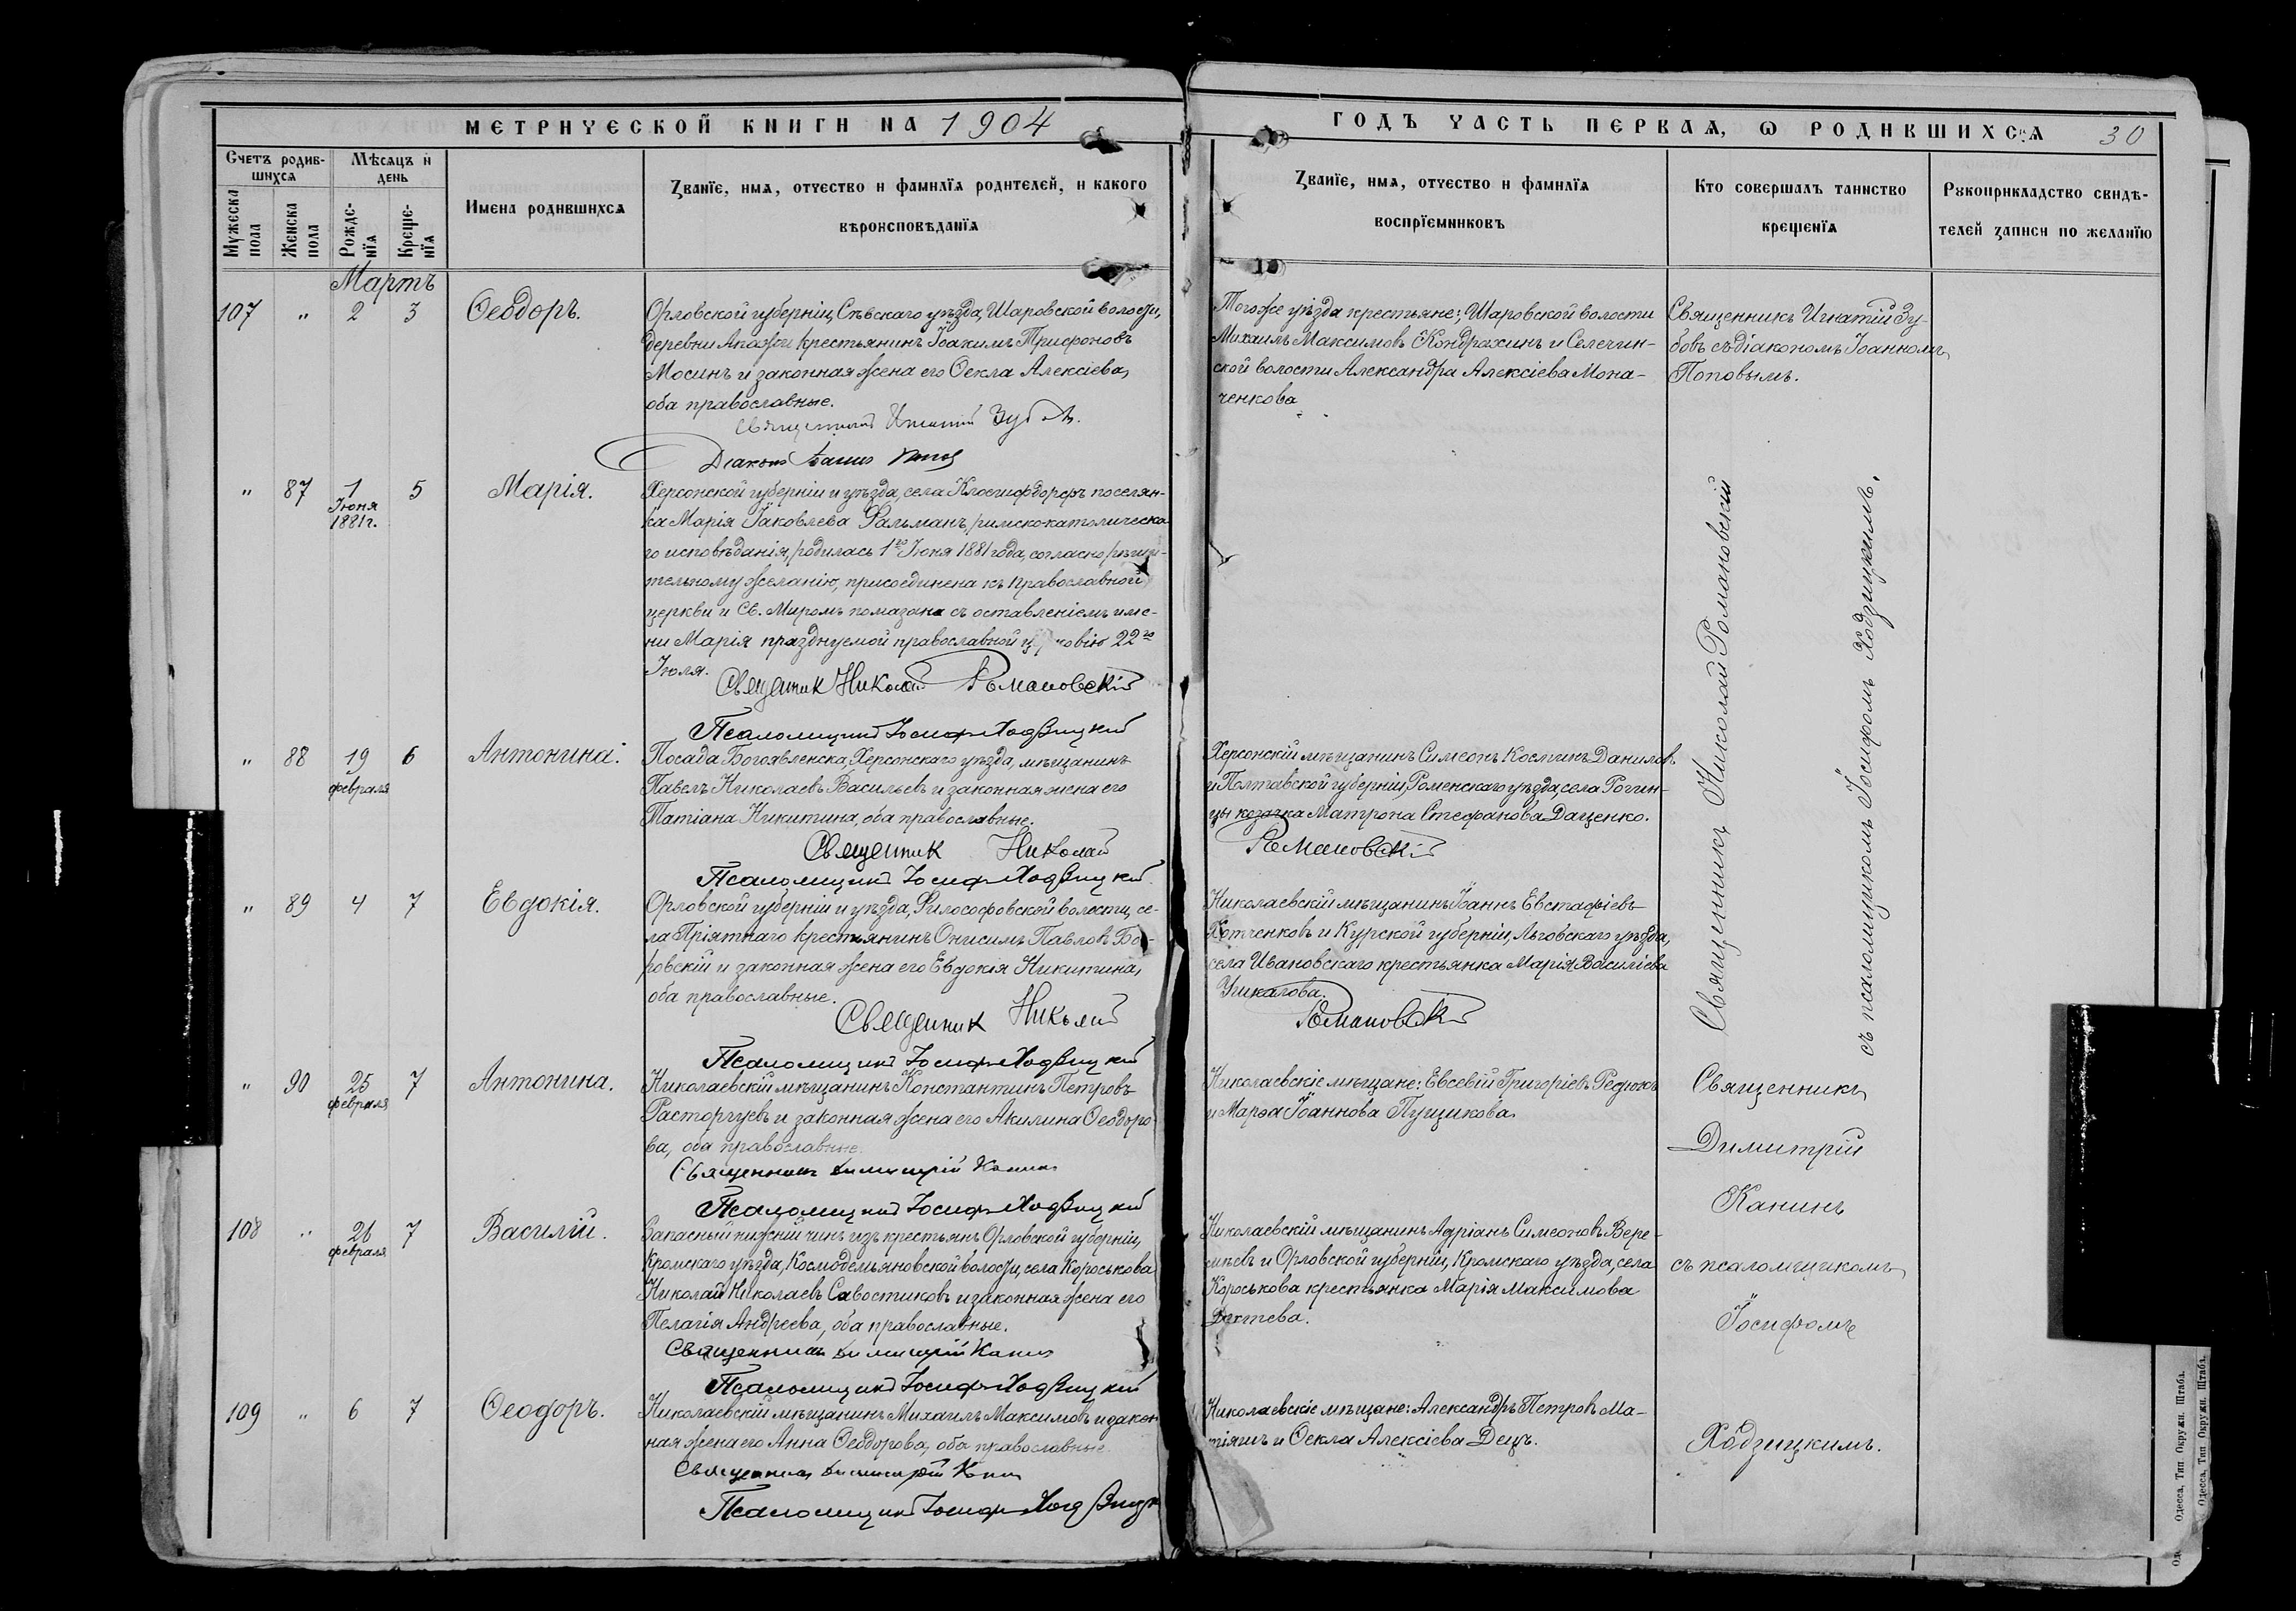 МЕТРИЧЕСКОЙ КНИГИ НА 1904
ГОДЪ ЧАСТЬ ПЕРВАЯ, Ѡ РОДИВШИХСЯ 30
Счетъ родив-
шихся
Мѣсяцъ и
день
Мужеска
пола
Женска
пола
Рожде-
нїя
Креще-
нїя
Имена родившихся
Званїе, имя, отчество и фамилїя родителей, и какого
вѣроисповѣданїя
Званїе, имя, отчество и фамилїя
воспрїемниковъ
Кто совершалъ таинство
крещенїя
Рукоприкладство свидѣ-
телей записи по желанїю
Мартъ
107 " 2 3 Ѳеодоръ.
Орловской губерніи, Сѣвскаго уѣзда, Шаровской волости,
деревни крестьянинъ Іоакимъ Трифоновъ
Мосинъ и законная жена его Ѳекла Алексіева,
оба православные.
Священникъ Игнатій Зубовъ.
Діаконъ Іоаннъ Поповъ
Тогоже уѣзда крестьяне: Шаровской волости
Михаилъ Максимовъ Кондрахинъ и Селечин-
ской волости Александра Алексіева Мона-
ченкова
Священникъ Игнатій Зу-
бовъ съ діакономъ Іоанномъ
Поповымъ.
" 87 1 5 Марія.
Іюня
1881 г.
Херсонской губерніи и уѣзда, села Клостифдорфъ поселян-
ка Марія Іаковлева Фальманъ, римско-католическа-
го исповѣданія, родилась 1го Іюня 1881 года, согласно рѣши-
тельному желанію, присоединена къ православной
церкви и Св. Миромъ помазана съ оставленіемъ име-
ни Марія празднуемой православной церковію 22го
Іюля.
Священник Николай Романовскій
Псаломщикъ Іосифъ Ходзицкій
Священникъ Николай Романовскій
съ псаломщикомъ Іосифомъ Ходзицкимъ.
" 88 19 6 Антонина.
февраля
Посада Богоявленска, Херсонскаго уѣзда, мѣщанинъ
Павелъ Николаевъ Васильевъ и законная жена его
Татіана Никитина, оба православные.
Священник Николай
Романовскій
Псаломщикъ Іосифъ Ходзицкій
Херсонскій мѣщанинъ Симеонъ Косминъ Даниловъ
и Полтавской губерніи, Роменскаго уѣзда, села Рогин-
цы козачка Матрона Стефанова Даценко.
" 89 4 7 Евдокія.
Орловской губерніи и уѣзда, Философовской волости, се-
ла Пріятнаго крестьянинъ Онисимъ Павловъ Бо-
ровскій и законная жена его Евдокія Никитина,
оба православные.
Священник Николай
Романовскій
Псаломщикъ Іосифъ Ходзицкій
Николаевскій мѣщанинъ Іоаннъ Евстафіевъ
Котченковъ и Курской губерніи, Льговскаго уѣзда,
села Ивановскаго крестьянка Марія Василіева
" 90 25 7 Антонина.
февраля
Николаевскій мѣщанинъ Константинъ Петровъ
Расторгуевъ и законная жена его Акилина Ѳеодоро-
ва, оба православные.
Священникъ Димитрій Канинъ
Псаломщикъ Іосифъ Ходзицкій
Николаевскіе мѣщане: Евсевій Григоріевъ Редюкъ
и Марѳа Іоаннова Пущикова.
Священникъ
Димитрій
Канинъ
съ псаломщикомъ
Іосифомъ
Ходзицкимъ.
108 " 26 7 Василій.
февраля
Запасный нижній чинъ изъ крестьянъ Орловской губерніи,
Кромскаго уѣзда, Космодемьяновской волости, села Короськова
Николай Николаевъ Савостиковъ и законная жена его
Пелагія Андреева, оба православные.
Священникъ Димитрій Канинъ
Псаломщикъ Іосифъ Ходзицкій
Николаевскій мѣщанинъ Адріанъ Симеоновъ Вере-
мѣевъ и Орловской губерніи, Кромскаго уѣзда, села
Короськова крестьянка Марія Максимова
109 " 6 7 Ѳеодоръ.
Николаевскій мѣщанинъ Михаилъ Максимовъ и закон-
ная жена его Анна Ѳеодорова, оба православные.
Священникъ Димитрій Канинъ
Псаломщикъ Іосифъ Ходзицкій
Николаевскіе мѣщане: Александръ Петровъ Ма-
тіяшъ и Ѳекла Алексіева Децъ.
Одесса, Тип. Окружн. Штаба.
Одесса, Тип. Окружн. Штаба.